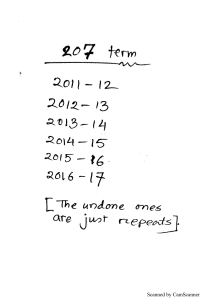 207 term
2011-12
2012-13
2013-14
2014-15
2015-16
2016-17
[The undone ones
are just repeats].
Scanned by CamScanner